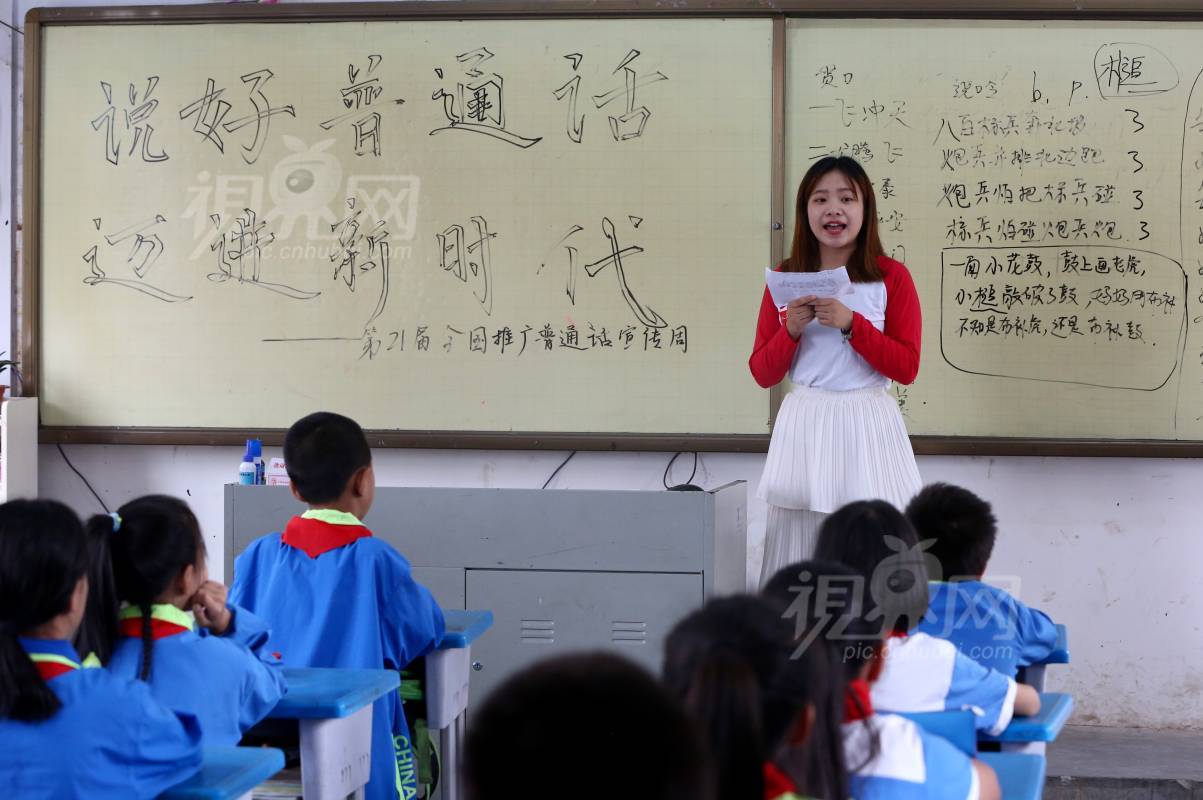 说好普通话
迈进新时代
——第21届全国推广普通话宣传周
贺口
一飞冲天
二龙腾飞
绕口令 b. p. 槌
八百标兵奔北坡 3
炮兵并排北边跑 3
炮兵怕把标兵碰 3
标兵怕碰炮兵炮. 3
一面小花鼓, 鼓上画老虎,
小槌敲破了鼓, 妈妈用布补
不知是布补虎, 还是布补鼓.
视界网
pic.cnhubei.com
视界网
pic.cnhubei.com
CHINA